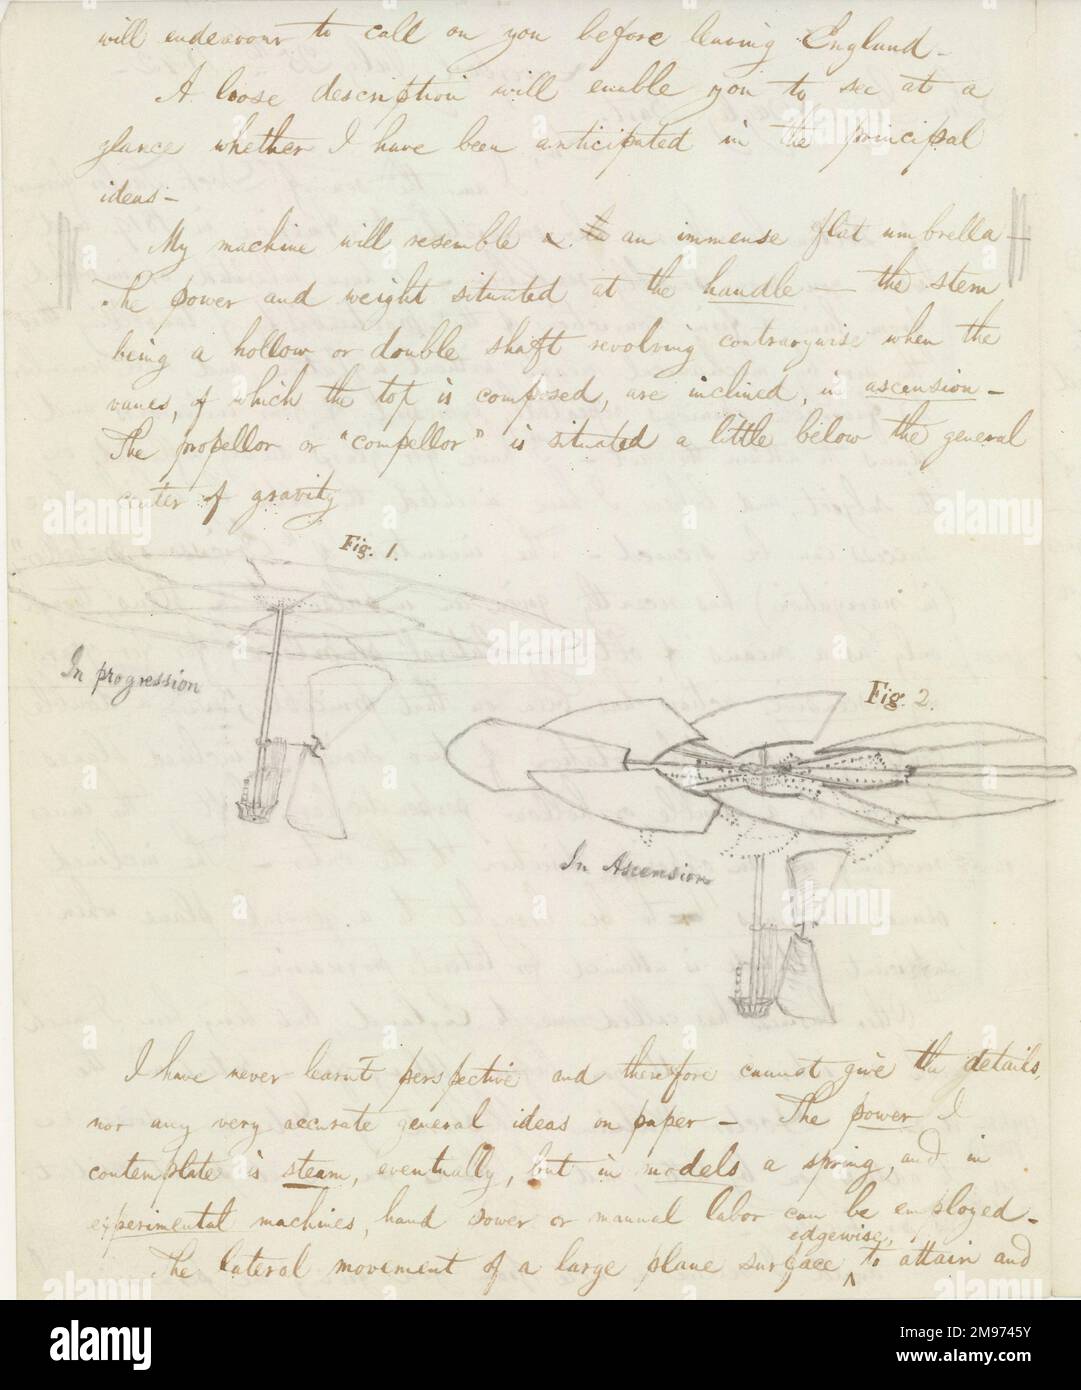 will endeavour to call on you before leaving England -
A loose description will enable you to see at a
glance whether I have been anticipated in the principal
ideas -
My machine will resemble an immense flat umbrella -
The power and weight situated at the handle - the stem
being a hollow or double shaft revolving contrarywise when the
vanes, of which the top is composed, are inclined, in ascension -
The propellor or "compellor" is situated a little below the general
center of gravity
Fig. 1.
In progression
Fig. 2.
In Ascension
I have never learnt perspective and therefore cannot give the details,
nor any very accurate general ideas on paper - The power I
contemplate is steam, eventually, but in models a spring, and in
experimental machines, hand power or manual labor can be employed -
edgewise,
The lateral movement of a large plane surface ^ to attain and
alamy
alamy
alamy
alamy
alamy
Image ID: 2M9745Y
www.alamy.com